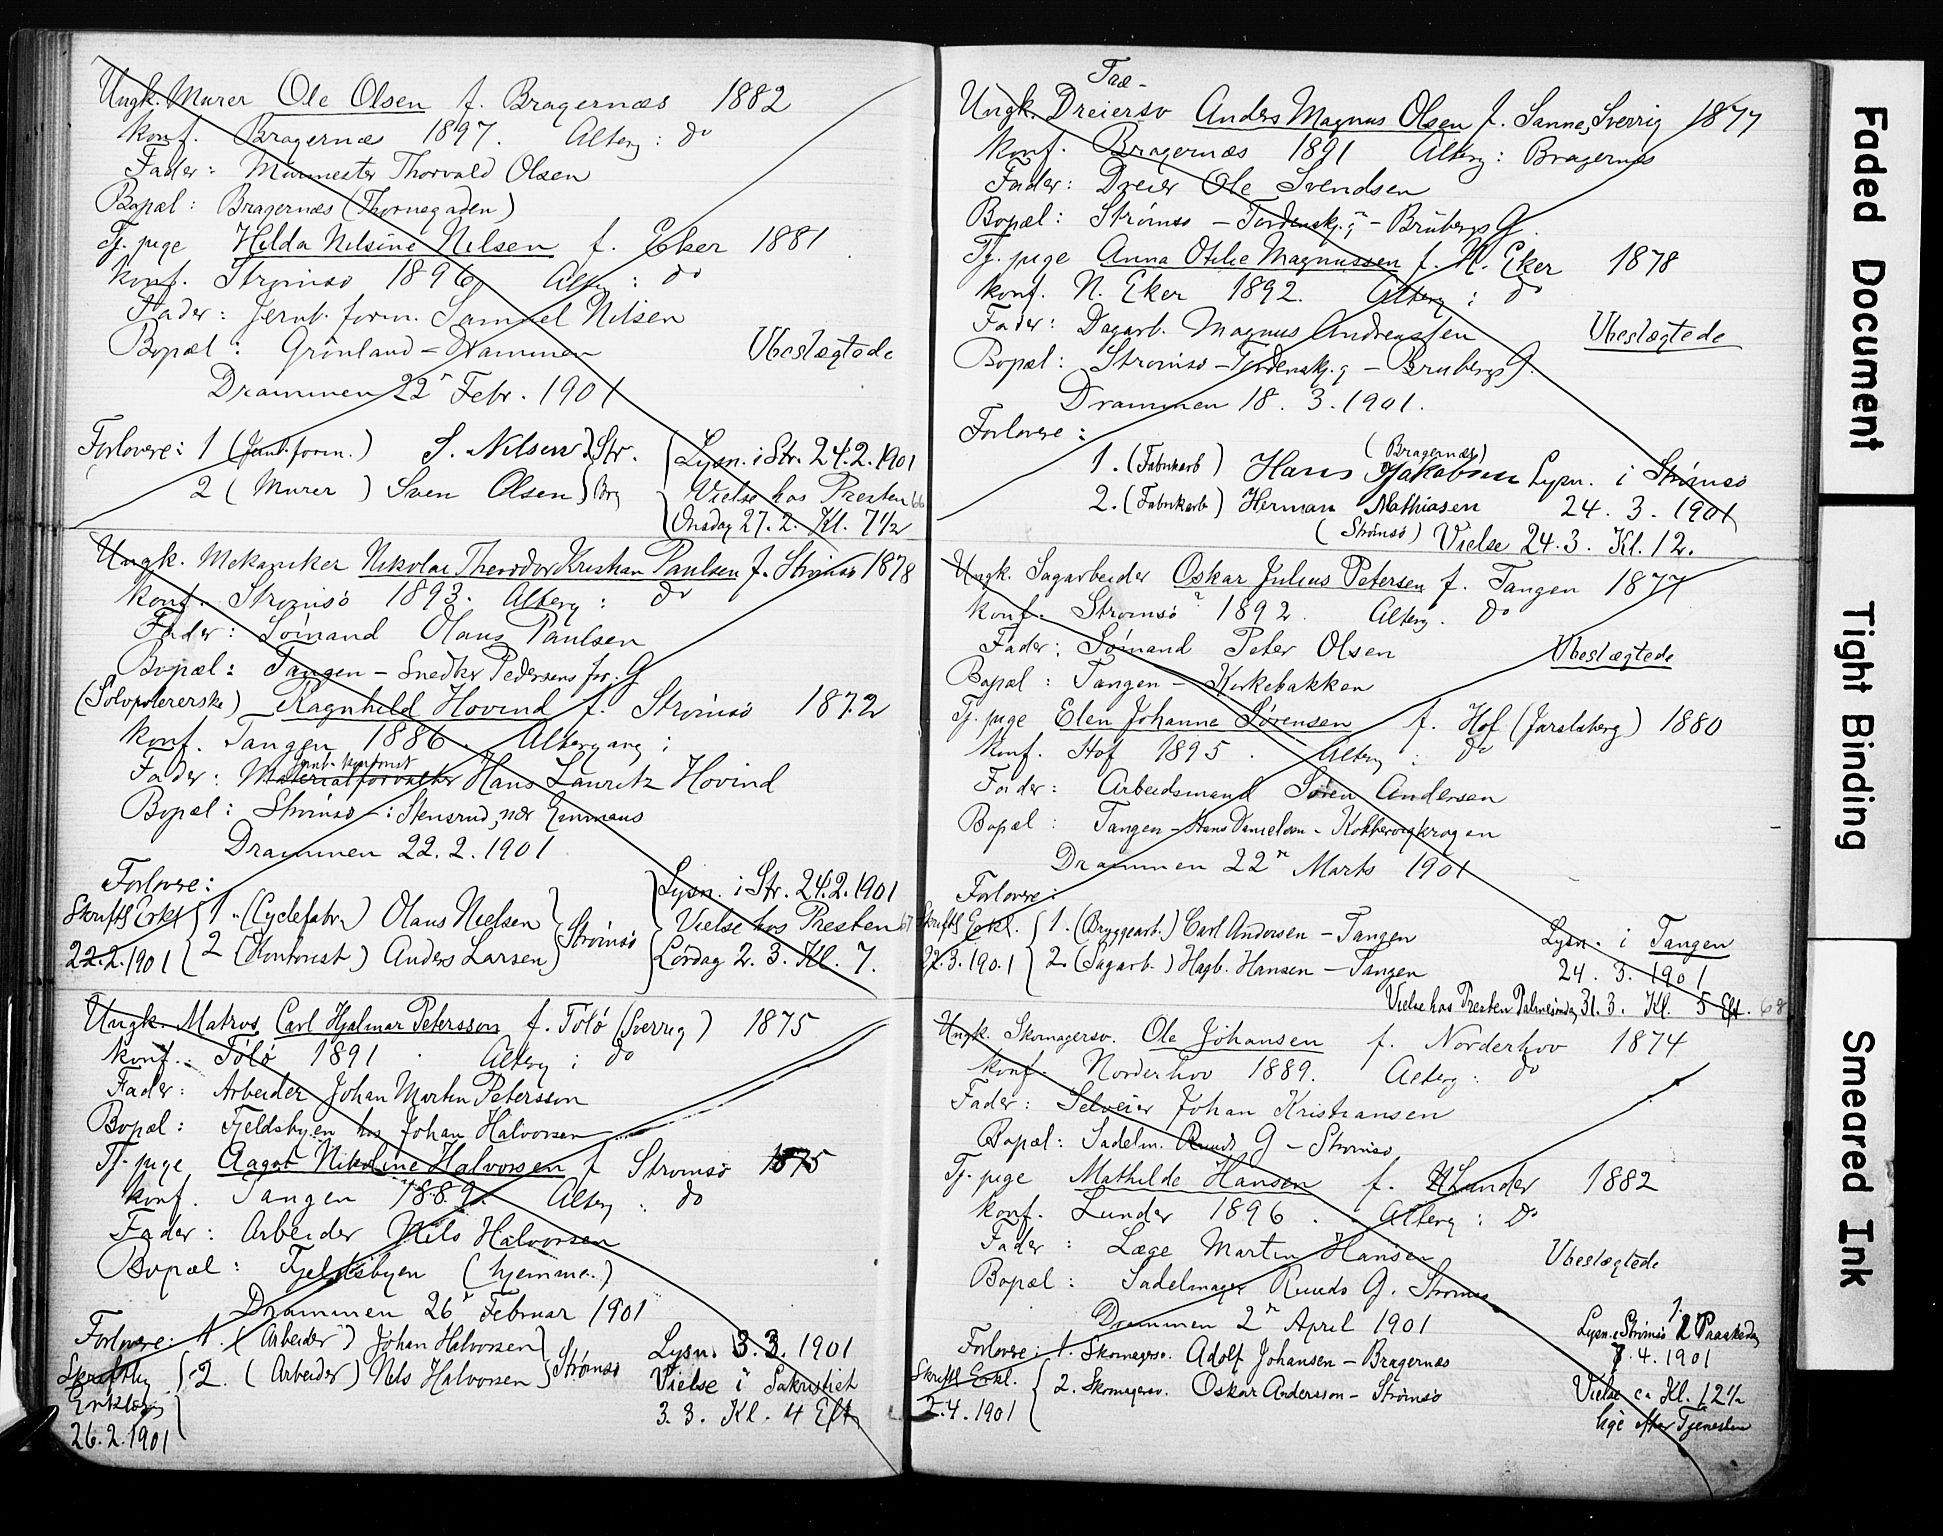 Ungk. Murer Ole Olsen f. Bragernæs 1882
konf. Bragernæs 1897. Alterg: do
Fader: Murmester Thorvald Olsen
Bopæl: Bragernæs (Thornegaden)
Tj. pige Hilda Nilsine Nilsen f. Eker 1881
konf. Strømsø 1896 Alterg: do
Fader: Jernb. form. Samuel Nilsen
Bopæl: Grønland - Drammen Ubeslægtede
Drammen 22n Febr. 1901
Forlovere: 1 (Jernb. form.) S. Nilsen } Str. { Lysn. i Str. 24.2.1901
2 (Murer) Sven Olsen } Brg { Vielse hos Presten 66
{ Onsdag 27. 2. Kl. 7½
Ungk. Mekaniker Nikolai Theodor Kristian Paulsen f. Strømsø 1878
konf. Strømsø 1893. Alterg: do
Fader: Sømand Olaus Paulsen
Bopæl: Tangen - Snedker Pedersens for. G
(Sølvpolererske) Ragnhild Hovind f. Strømsø 1872
konf. Tangen 1886. Altergang:
Fader: Materialforvalter Hans Lauritz Hovind
Bopæl: Strømsø -: Stensrud, nær Emmaus
Drammen 22.2.1901
Forlovere:
Skriftl Erkl { 1. (Cyclefabr.) Olaus Nielsen } Strømsø { Lysn. i Str. 24.2.1901
22.2.1901 { 2 (Kontorist) Anders Larsen } { Vielse hos Presten 67
{ Lördag 2. 3. Kl. 7.
Ungk. Matros Carl Hjalmar Petersson f. Tölö (Sverrig) 1875
konf. Tölö 1891 Alterg: do
Fader: Arbeider Johan Martin Petersson
Bopæl: Fjeldsbyen hos Johan Halvorsen
Tj. pige Aagot Nikoline Halvorsen f Strømsø 1875
konf. Tangen 1889. Alterg: do
Fader: Arbeider Nils Halvorsen
Bopæl: Fjeldsbyen (hjemme.)
Drammen 26n Februar 1901
Forlovere: 1. (Arbeider) Johan Halvorsen } Strømsø Lysn. 3.3. 1901
Skriftlig { 2. (Arbeider) Nils Halvorsen } Vielse i Sakristiet
Erklær. 3. 3. Kl. 4 Eft
26.2.1901
Fad-
Ungk. Dreiersv Anders Magnus Olsen f. Sanne, Sverrig 1877
konf. Bragernæs 1891 Alterg: Bragernæs
Fader: Dreier Ole Svendsen
Bopæl: Strømsø - Tordenskj. g - Brubergs G.
Tj. pige Anna Otilie Magnussen f. N. Eker 1878
konf. N. Eker 1892. Alterg: do
Fader: Dagarb. Magnus Andreassen Ubeslægtede
Bopæl: Strømsø - Tordenskj. g - Brubergs G.
Drammen 18. 3. 1901.
Forlovere:
(Bragernæs)
1. (Fabrikarb) Hans Jakobsen Lysn. i Strømsø
2. (Fabrikarb) Herman Mathiasen 24. 3. 1901
(Strømsø) Vielse 24.3. Kl. 12.
Ungk. Sagarbeider Oskar Julius Petersen f. Tangen 1877
konf. Strømsø ? 1892 Alterg. do
Fader: Sømand Peter Olsen Ubeslægtede
Bopæl: Tangen - Kirkebakken
Tj. pige Elen Johanne Sørensen f. Hof (Jarlsberg) 1880
konf. Hof 1895. Alterg: do
Fader: Arbeidsmand Søren Andersen
Bopæl: Tangen - Hans Danielsen - Kobbervigkrogen
Drammen 22n Marts 1901
Forlovere:
Skriftl Erkl. { 1. (Bryggearb.) Carl Andersen - Tangen Lysn. i Tangen
22.3.1901 { 2. (Sagarb.) Hagb. Hansen - Tangen 24. 3. 1901
Vielse hos Presten Palmesöndag 31. 3. Kl. 5 Eft. 68
Ungk. Skomagersv. Ole Johansen f. Norderhov 1874
konf. Norderhov 1889. Alterg: do
Fader: Selveier Johan Kristiansen
Bopæl: Sadelm. Ruuds G - Strømsø
Tj. pige Mathilde Hansen f. Lunder 1882
konf. Lunder 1896. Alterg: do
Fader: Læge Martin Hansen Ubeslægtede
Bopæl: Sadelmager Ruuds G. Strømsø
Drammen 2n April 1901
Forlovere: 1. Skomagersv. Adolf Johansen - Bragernæs Lysn. i Strømsø 1. Paaskedag
Skriftl Erkl. { 2. Skomagersv. Oskar Andersson - Strømsø 7.4.1901
2.4.1901 Vielse ca Kl. 12½
lige efter Tjenesten
Faded Document
Tight Binding
Smeared Ink